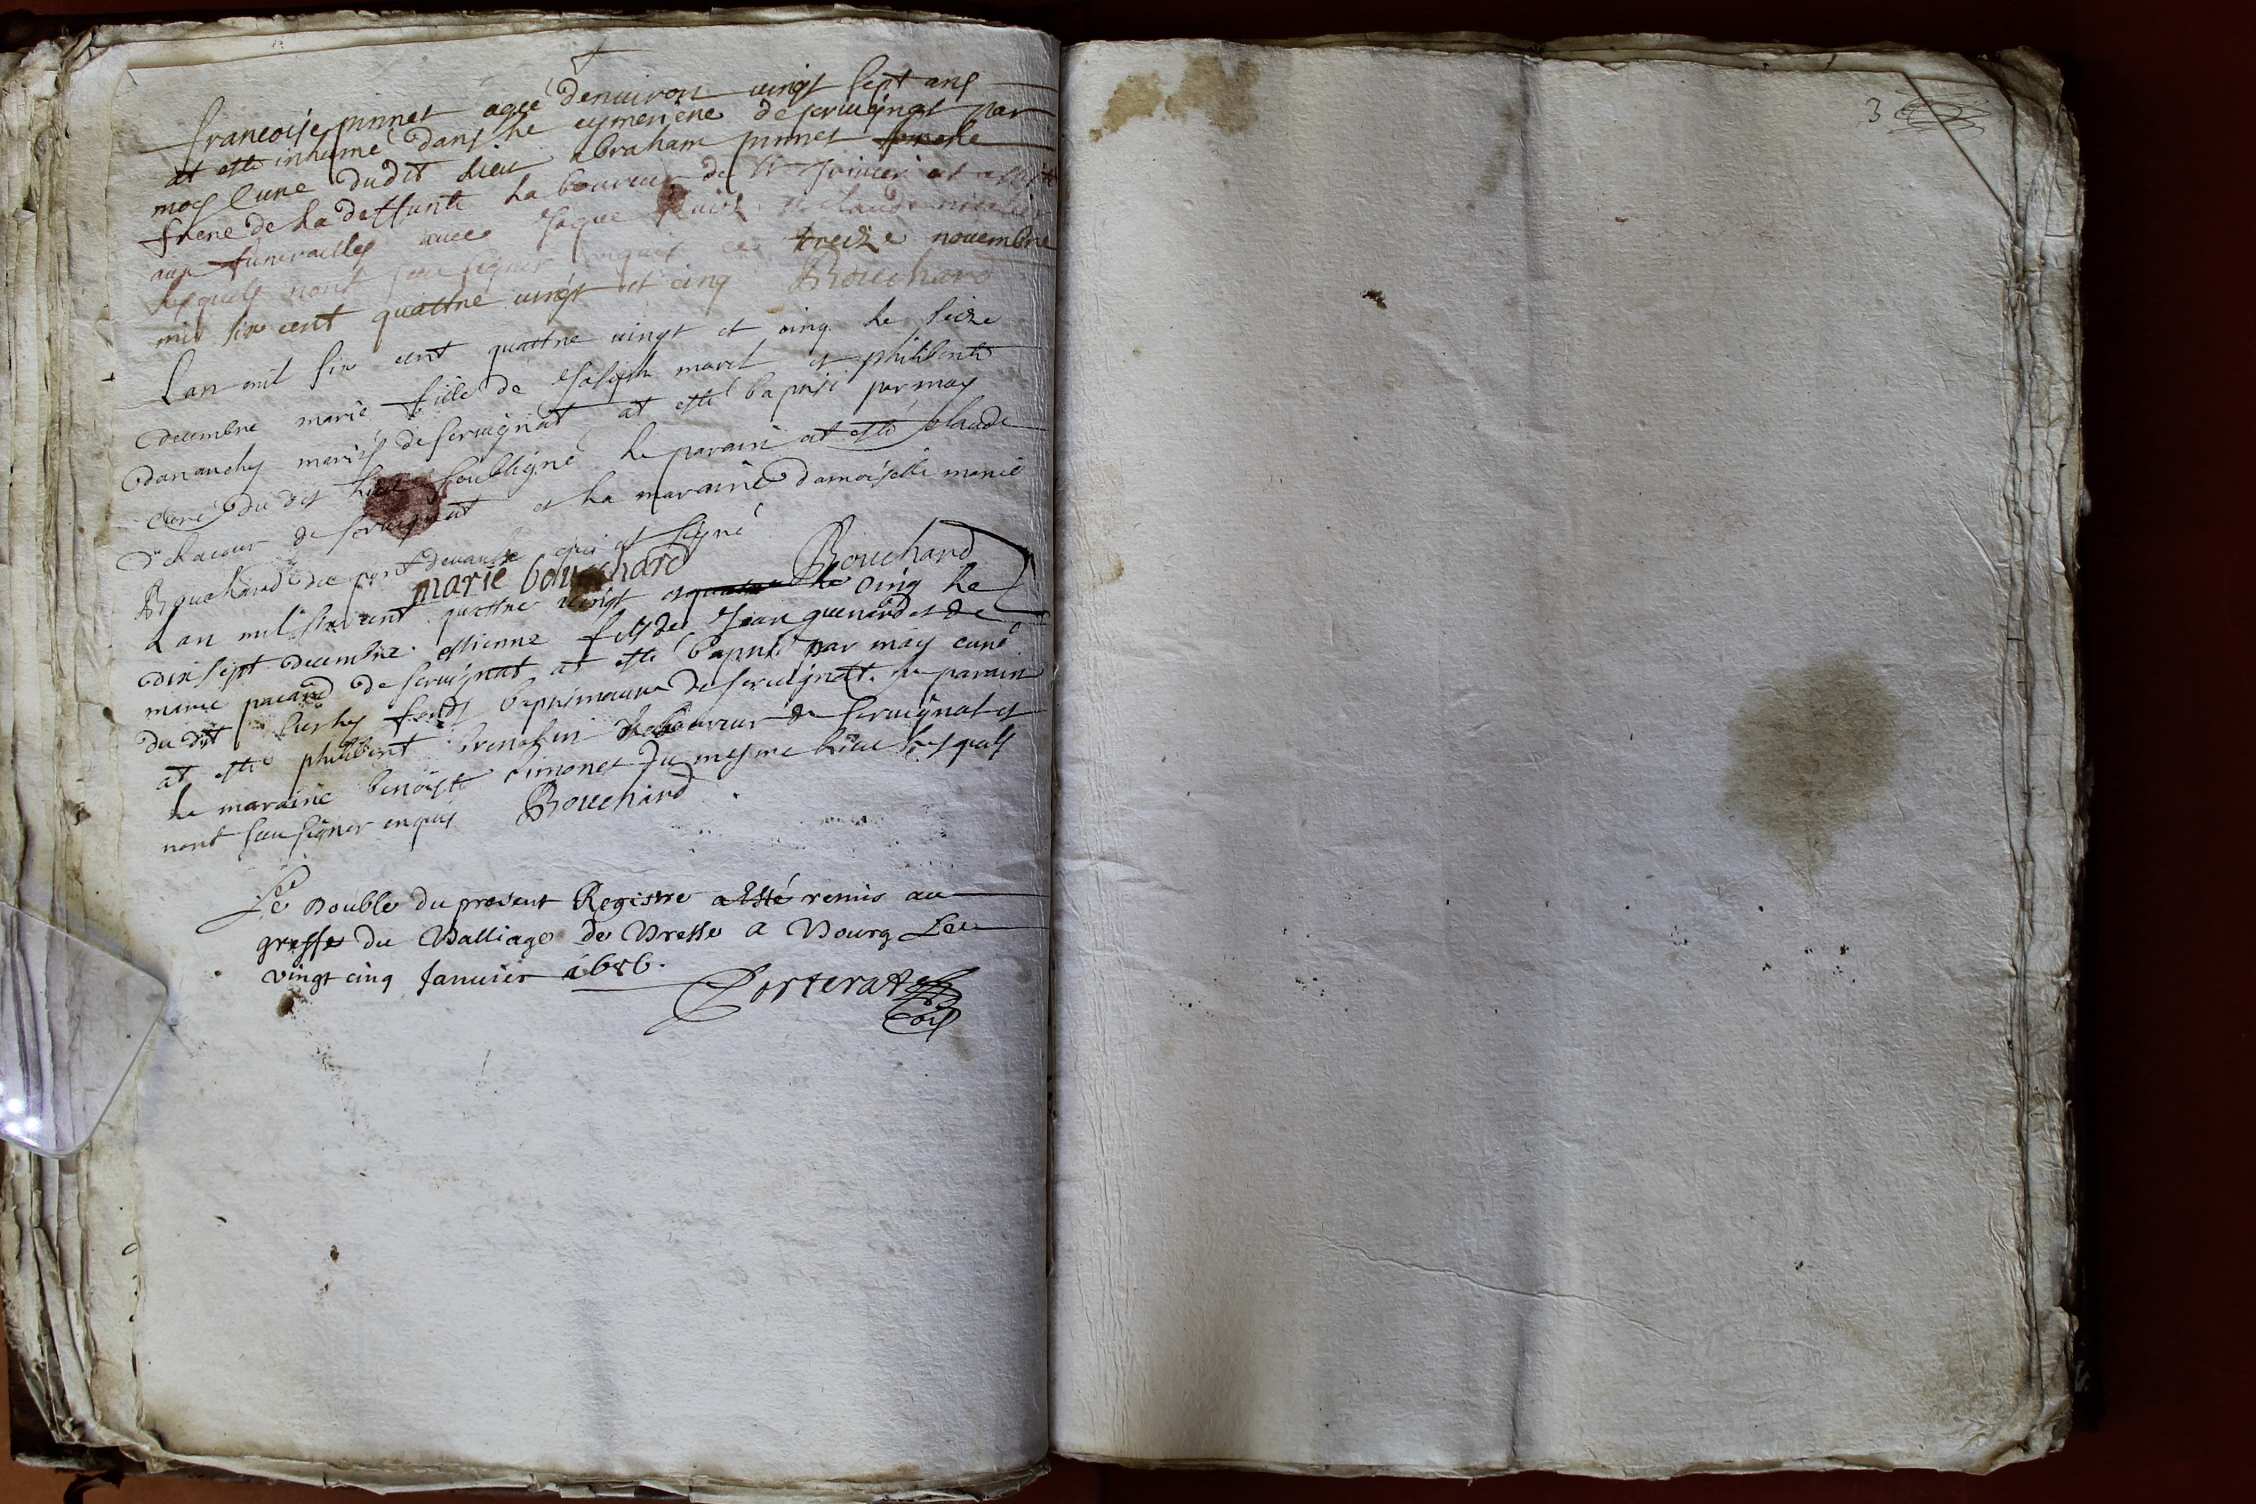 francoise pinnet agee denuiron uingt sept ans
at esté inhumé dans le cymetiere de seruignat par
moy Cure dudit lieu abraham pinnet
frere de la deffunte laboureur de St
aux funerailles auec Jaque et claude
lesquels nont sceu signer enquis ce treize nouembre
mil six cent quattre uingt et cinq Bouchard
Lan mil six cent quattre uingt et cinq le seize
decembre marie fille de Joseph morel et philiberte
dananchy mariés de seruignat at esté baptisé par moy
Curé du dit lieu soubsigné le parain at esté claude
delacour de seruignat et la maraine damoiselle marie
Bouchard du pont deuaux qui at signé
marie bouchard Bouchard
Lan mil six cent quattre uingt et cinq le
dix sept decembre estienne fils de Jean guenard et de
marie pacard de seruignat at esté baptisé par moy curé
du dit lieu es fonds baptismaux de seruignat. le parain
at esté philibert laboureur de seruignat et
la maraine benoiste simonet du mesme lieu lesquels
nont sceu signer enquis Bouchard
Le Double du present Registre a Esté remis au
greffe du Balliage de Bresse a Bourg Le
vingt cinq Januier 1686.
Porterat
3